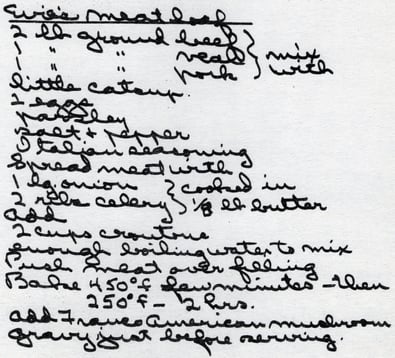 Evie's meat loaf
2 lb ground beef } mix
1 " " veal } with
1 " " pork
little catsup
2 eggs
parsley
salt + pepper
Italian seasoning
Spread meat with
1 lg onion } cooked in
2 ribs celery } 1/8 lb butter
add
2 cups croutons
enough boiling water to mix
Push meat over filling
Bake 450°F few minutes - then
250°F - 2 hrs.
add Franco American mushroom
gravy just before serving.